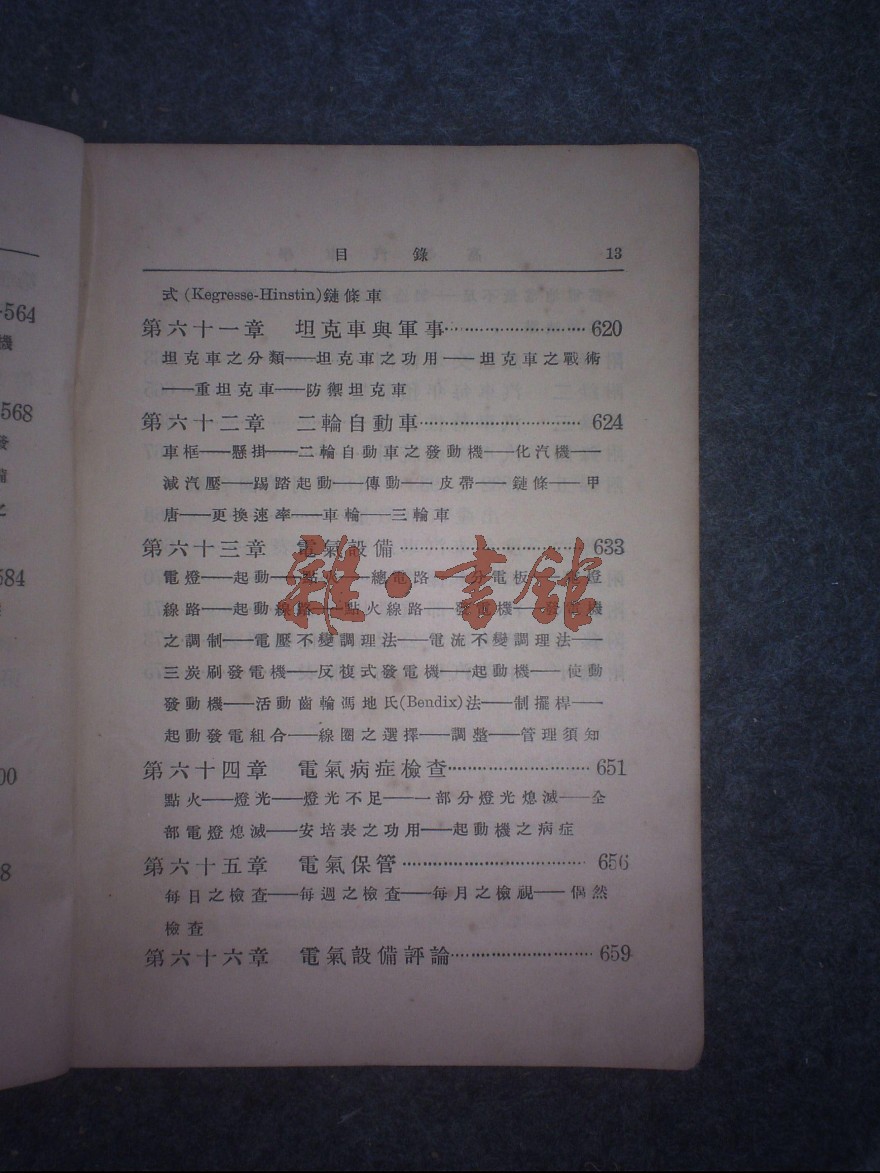 目錄 13
式(Kegresse-Hinstin)鏈條車
第六十一章 坦克車與軍事……………………620
坦克車之分類——坦克車之功用——坦克車之戰術
——重坦克車——防禦坦克車
第六十二章 二輪自動車……………………624
車框——懸掛——二輪自動車之發動機——化汽機——
減汽壓——踢踏起動——傳動——皮帶——鏈條——甲
唐——更換速率——車輪——三輪車
第六十三章 電氣設備……………………633
電燈——起動——點火——總電路——分電板——電燈
線路——起動線路——點火線路——發電機——發電機
之調制——電壓不變調理法——電流不變調理法——
三炭刷發電機——反複式發電機——起動機——使動
發動機——活動齒輪馮地氏(Bendix)法——制擺桿——
起動發電組合——線圈之選擇——調整——管理須知
第六十四章 電氣病症檢查……………………651
點火——燈光——燈光不足——一部分燈光熄滅——全
部電燈熄滅——安培表之功用——起動機之病症
第六十五章 電氣保管……………………656
每日之檢查——每週之檢查——每月之檢視——偶然
檢查
第六十六章 電氣設備評論……………………659
雜·書館
564
機
568
發
之
584
00
8